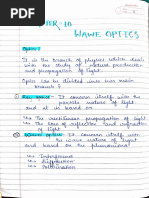 CHAPTER-10
WAWE OPTICS
Optics :
It is the branch of physics which deals
with the study of nature production
and propagation of light.
Optics can be divided into two main
branch ?
Ray optics : It concern itself with the
particle nature of light
and it is based on
The rectilinear propagation of light
The laws of reflection and refraction
of light
Wave optics : It concern itself with
the wave nature of light
based on the phenomenons
Interference
Diffraction
Polarisation